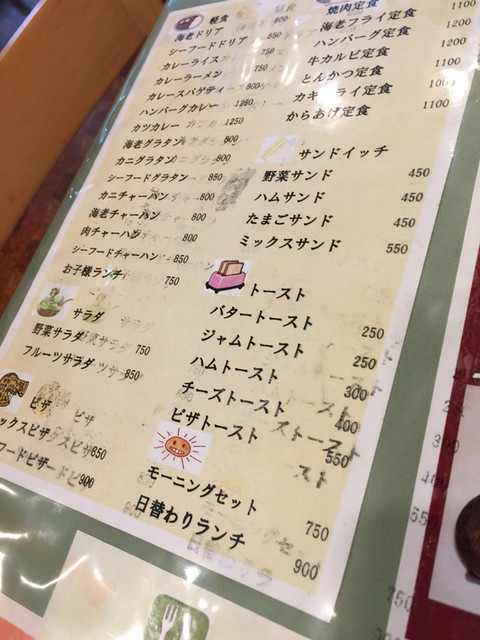 軽食
海老ドリア
シーフードドリア 850
カレーライス
カレーラーメン 750
カレースパゲティー 800
ハンバーグカレー
カツカレー 1250
海老グラタン 800
カニグラタン 800
シーフードグラタン 850
カニチャーハン 800
海老チャーハン 800
肉チャーハン 800
シーフードチャーハン 850
お子様ランチ 750
サラダ
野菜サラダ 750
フルーツサラダ 850
ピザ
ックスピザ 850
フードピザ 900
焼肉定食 1100
海老フライ定食 1100
ハンバーグ定食 1200
牛カルビ定食 1200
とんかつ定食 1100
カキフライ定食
からあげ定食 1100
サンドイッチ
野菜サンド 450
ハムサンド 450
たまごサンド 450
ミックスサンド 550
トースト
バタートースト 250
ジャムトースト 250
ハムトースト 300
チーズトースト 400
ピザトースト 550
モーニングセット 750
日替わりランチ 900